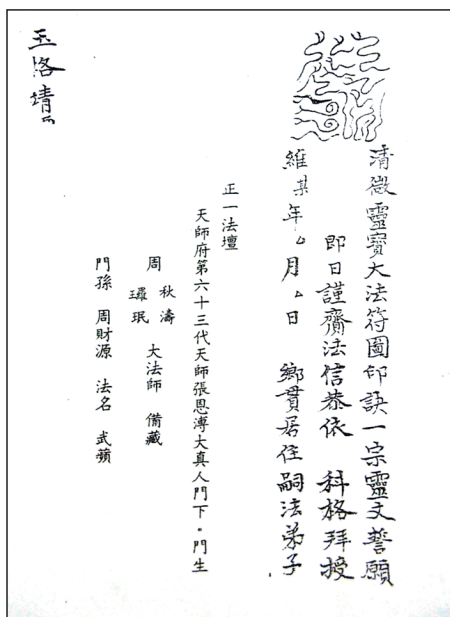 清微靈寶大法符圖印訣一宗靈文誓願
即日謹齎法信恭依 科格拜授
維某年厶月厶日 鄉貫居住嗣法弟子
正一法壇
天師府第六十三代天師張恩溥大真人門下。門生
周 秋濤 瑋珉 大法師 備藏
門孫 周財源 法名 武蘋
玉洛靖